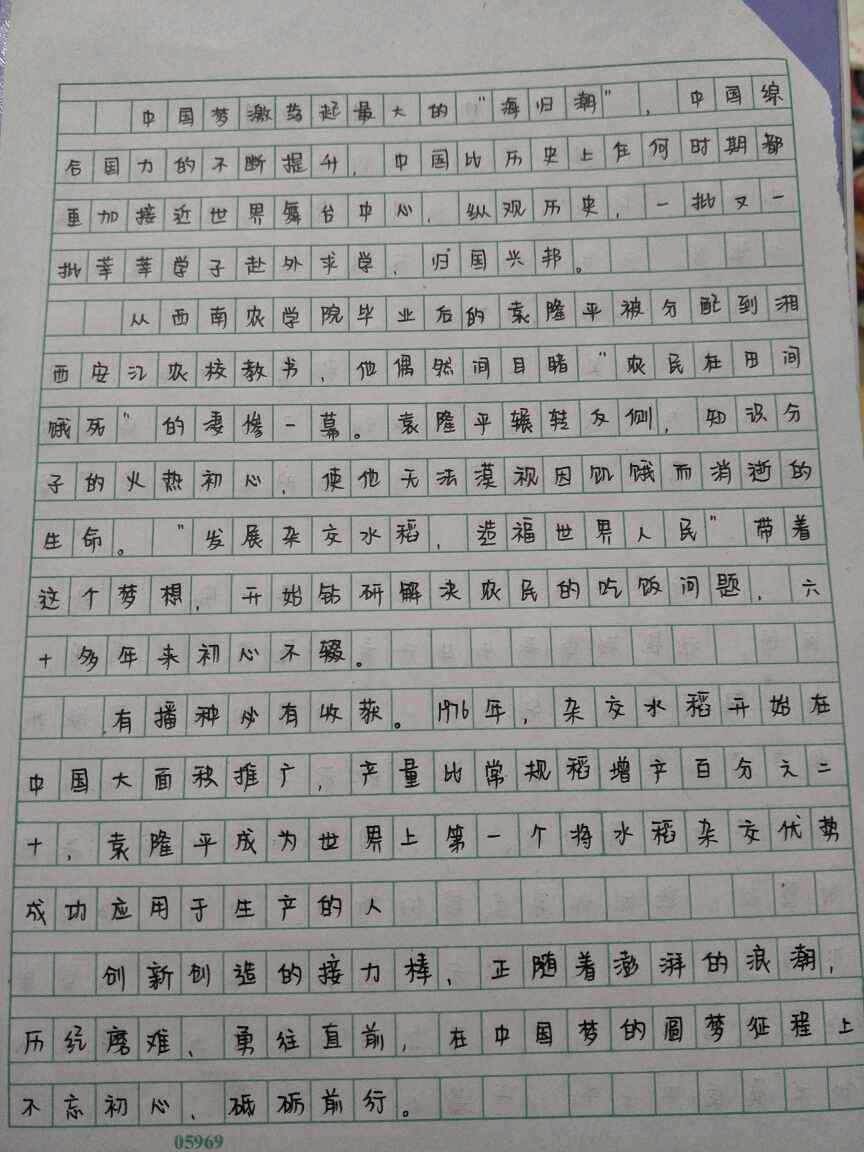 中国梦激荡起最大的“海归潮”，中国综
合国力的不断提升，中国比历史上任何时期都
更加接近世界舞台中心，纵观历史，一批又一
批莘莘学子赴外求学，归国兴邦。
从西南农学院毕业后的袁隆平被分配到湘
西安江农校教书，他偶然间目睹“农民在田间
饿死”的凄惨一幕。袁隆平辗转反侧，知识分
子的火热初心，使他无法漠视因饥饿而消逝的
生命。“发展杂交水稻，造福世界人民”带着
这个梦想，开始钻研解决农民的吃饭问题，六
十多年来初心不辍。
有播种必有收获。1976年，杂交水稻开始在
中国大面积推广，产量比常规稻增产百分之二
十，袁隆平成为世界上第一个将水稻杂交优势
成功应用于生产的人
创新创造的接力棒，正随着澎湃的浪潮，
历经磨难、勇往直前，在中国梦的圆梦征程上
不忘初心、砥砺前行。
05969